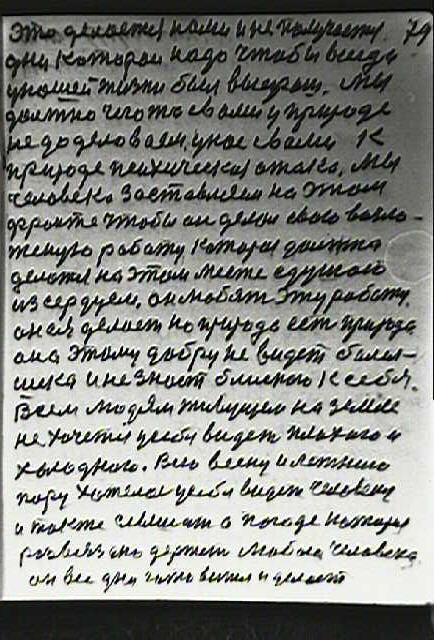 Это делается нами и не получается 79
дни которои надо чтобы всегда
у нашей жизни был выиграш. Мы
должно чтоть с вами у природе
не доделоваем, у нас с вами к
природе психическая отака. Мы
человека заставляем на этом
фронте чтобы он делал свою возло-
женую работу, которая должна
делатся на этом месте с душою
из сердцем, он любят эту работу,
она делает но природа есть природа
она этому добру не видет болел-
шика и не знает близкого к себе.
Всем людям живущем на земле
не хочется у себя видет плохого и
холодного. Всю весну и летнею
пору хотелос у себя видет человеку
и также слышат о погоде которая
развязано держат любого человека
он все дни готовился и делает